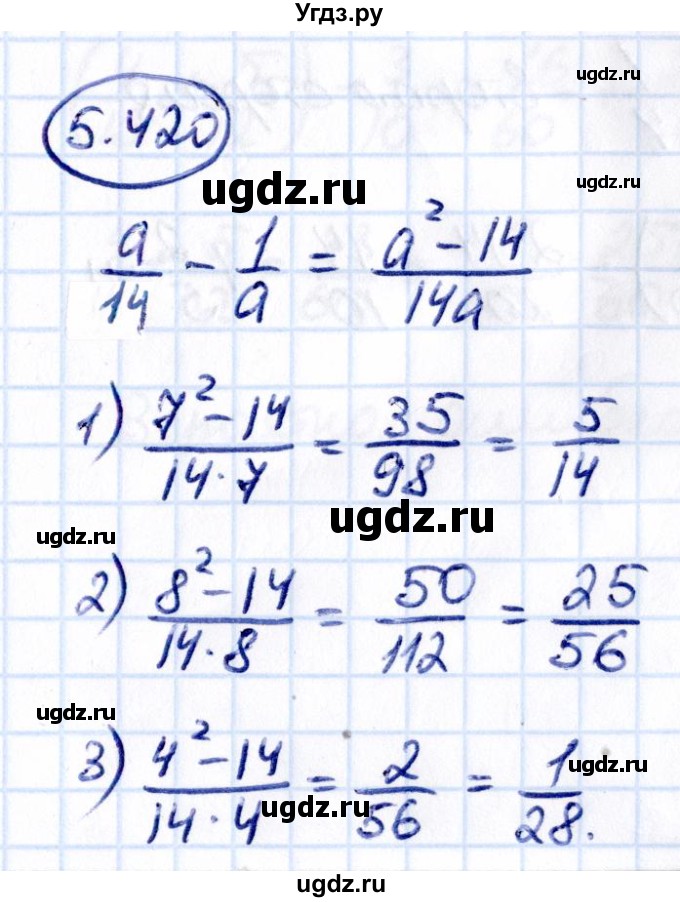 Угдз.ру
ugdz.ru
5.420
ugdz.ru
ugdz.ru
a/14 - 1/a = (a² - 14)/14a
1) (7² - 14)/(14 · 7) = 35/98 = 5/14
ugdz.ru
ugdz.ru
2) (8² - 14)/(14 · 8) = 50/112 = 25/56
ugdz.ru
3) (4² - 14)/(14 · 4) = 2/56 = 1/28.
ugdz.ru
ugdz.ru
ugdz.ru